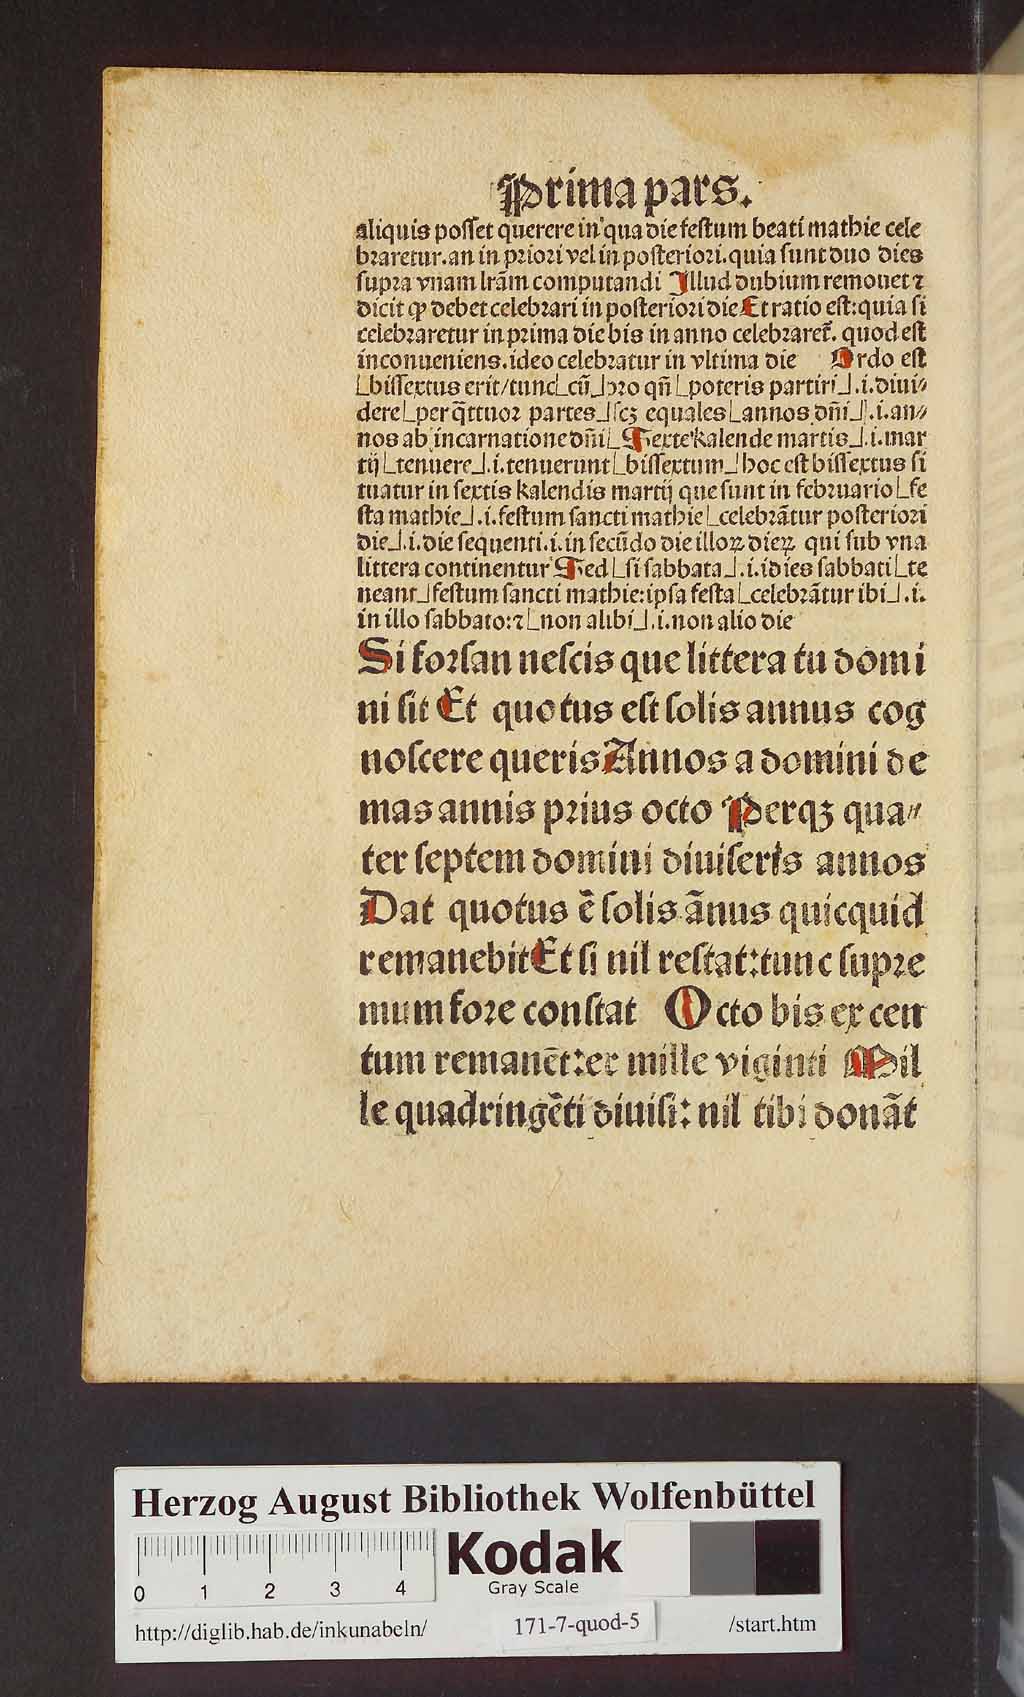 Prima pars.
aliquis poſſet querere in qua die feſtum beati mathie cele
braretur. an in priori vel in poſteriori. quia ſunt duo dies
ſupra vnam lr̄am computandi Illud dubium remouet ⁊
dicit ꝙ debet celebrari in poſteriori die Et ratio eſt: quia ſi
celebraretur in prima die bis in anno celebraret̃. quod eſt
inconueniens. ideo celebratur in vltima die Ordo eſt
⌊biſſextus erit/ tunc⌊cū⌋pro qn̄⌊poteris partiri⌋.i. diui⸗
dere⌊per q̄ttuor partes⌋ſcꝫ equales⌊annos dn̄i⌋.i. an⸗
nos ab incarnatione dn̄i⌊Sexte kalende martis⌋.i. mar
tij⌊tenuere⌋.i. tenuerunt⌊biſſextum⌋hoc eſt biſſextus ſi
tuatur in ſextis kalendis martij que ſunt in februario⌊fe
ſta mathie⌋.i. feſtum ſancti mathie⌊celebrātur poſteriori
die⌋.i. die ſequenti .i. in ſecūdo die illoꝝ dieꝝ qui ſub vna
littera continentur Sed⌊ſi ſabbata⌋.i. dies ſabbati⌊te
neant⌋feſtum ſancti mathie: ipſa feſta⌊celebrātur ibi⌋.i.
in illo ſabbato: ⁊⌊non alibi⌋.i. non alio die
Si forſan neſcis que littera tu domi
ni ſit Et quotus eſt ſolis annus cog
noſcere queris Annos a domini de
mas annis prius octo Perqꝫ qua⸗
ter ſeptem domini diuiſeris annos
Dat quotus ē ſolis ānus quicquid
remanebit Et ſi nil reſtat: tunc ſupre
mum fore conſtat Octo bis ex cen
tum remanēt: ex mille viginti Mil
le quadringēti diuiſi: nil tibi donāt
Herzog August Bibliothek Wolfenbüttel
0 1 2 3 4
Kodak
Gray Scale
http://diglib.hab.de/inkunabeln/ 171-7-quod-5 /start.htm